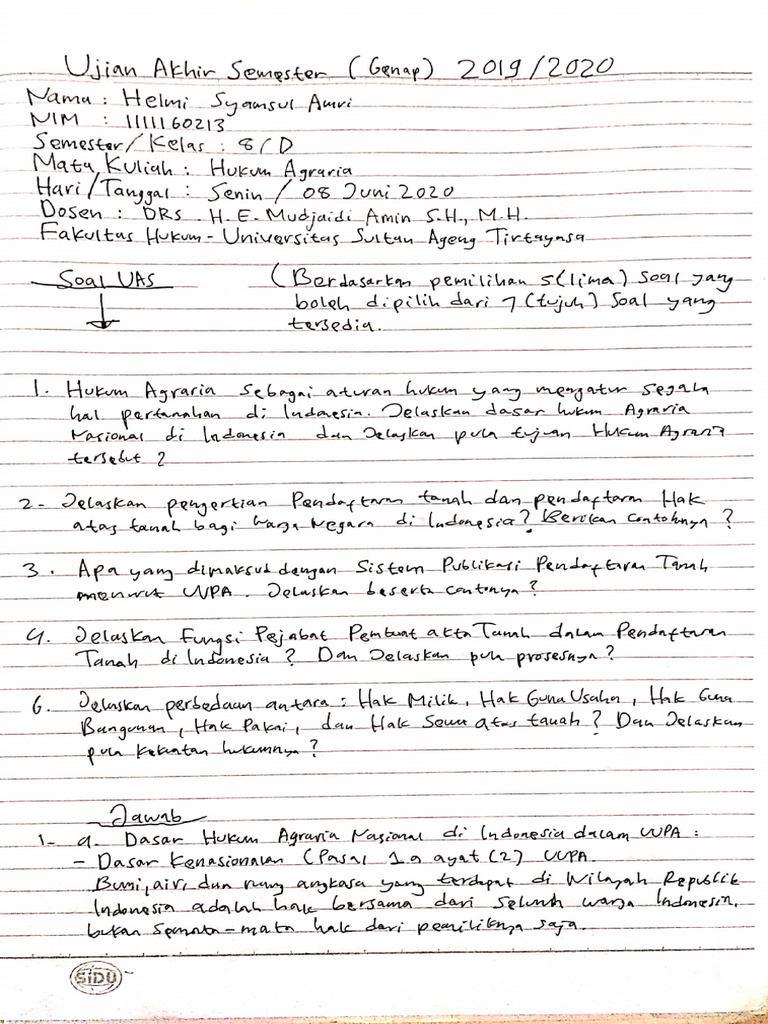 Ujian Akhir Semester (Genap) 2019/2020
Nama : Helmi Syamsul Amri
NIM : 1111160213
Semester/Kelas : 8/D
Mata Kuliah : Hukum Agraria
Hari/Tanggal : Senin / 08 Juni 2020
Dosen : DRs. H. E. Mudjaidi Amin S.H., M.H.
Fakultas Hukum - Universitas Sultan Ageng Tirtayasa
Soal UAS
(Berdasarkan pemilihan 5 (lima) Soal yang
boleh dipilih dari 7 (tujuh) Soal yang
tersedia.
1. Hukum Agraria sebagai aturan hukum yang mengatur segala
hal pertanahan di Indonesia. Jelaskan dasar hukum Agraria
Nasional di Indonesia dan Jelaskan pula tujuan Hukum Agraria
tersebut ?
2. Jelaskan pengertian Pendaftaran tanah dan pendaftaran Hak
atas tanah bagi Warga Negara di Indonesia ? Berikan contohnya ?
3. Apa yang dimaksud dengan Sistem Publikasi Pendaftaran Tanah
menurut UUPA. Jelaskan beserta contonya ?
4. Jelaskan Fungsi Pejabat Pembuat akta Tanah dalam Pendaftaran
Tanah di Indonesia ? Dan Jelaskan pula prosesnya ?
6. Jelaskan perbedaan antara : Hak Milik, Hak Guna Usaha, Hak Guna
Bangunan, Hak Pakai, dan Hak Sewa atas tanah ? Dan Jelaskan
pula kekuatan hukumnya ?
Jawab
1. a. Dasar Hukum Agraria Nasional di Indonesia dalam UUPA :
- Dasar Kenasionalan (Pasal 1 a ayat (2) UUPA.
Bumi, air, dan ruang angkasa yang terdapat di Wilayah Republik
Indonesia adalah hak bersama dari seluruh warga Indonesia,
bukan semata-mata hak dari pemiliknya saja.
SIDU